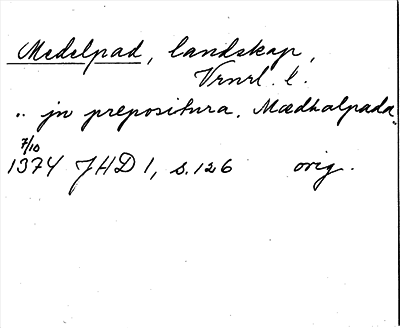 Medelpad, landskap,
Vrnrl. l.
.. jn prepositura. Mædhalpada"
7/10
1374 JHD 1, s. 126 orig.